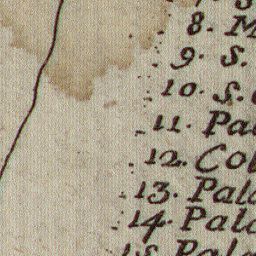 8. M
9. S.
10. S.
11. Pa
12. Co
13. Pala
14. Pala